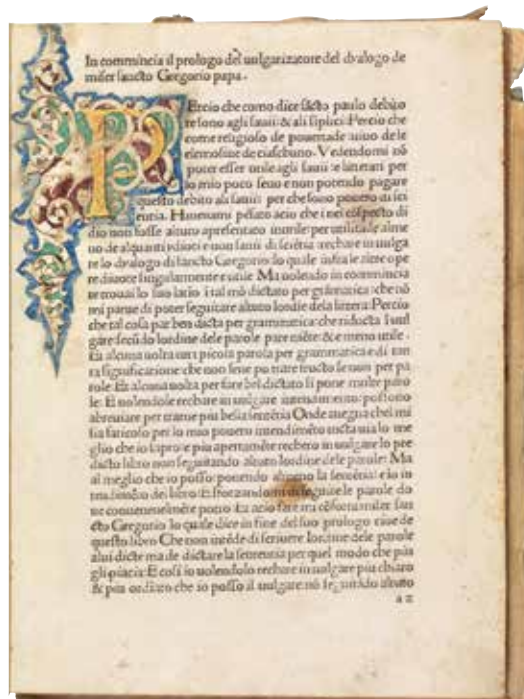 In commincia il prologo del uulgarizatore del dyalogo de
miser sancto Gregorio papa.
P Ercio che como dice sãcto paulo debito
re sono agli sauii & ali sĩplici: Percio che
come religioso de pouertade uiuo dele
elemosine de ciaschuno. Vedendomi nõ
poter esser utile agli sauii e literati per
lo mio poco seno e non potendo pagare
questo debito ali sauii: per che sono pouero di sci
entia. Haueuami pẽsato acio che i nel cõspecto di
dio non fosse al tuto apresentato inutile: per utilitade alme
no de alquanti ydioti e non sauii di sciẽtia rechare in uulga
re lo dyalogo di sancto Gregorio: lo quale infra le altre ope
re diuote singularmente e utile. Ma uolendo in commincia
re trouai lo suo latio i tal mõ dictato per grãmatica: che nõ
mi parue di poter seguitare al tuto lordine dela littera: Percio
che tal cosa par ben dicta per grammatica: che riducta ĩ uul
gare secũdo lordine dele parole pare niẽte: & e meno utile.
Et alcuna uolta una picola parola per grammatica e di tan
ta significatione che non sene po trare fructo se non per pa
role. Et alcuna uolta per fare bel dictato si pone multe paro
le. E uolendole rechare in uulgare
abreuiare per trarne piu bella sentẽtia Onde auegna chel mi
sia faticoso per lo mio pouero intendimẽto tuctauia lo me
glio che io sapro: e piu apertamẽte rechero in uulgare lo pre
dicto libro non seguitando al tuto lordine dele parole: Ma
al meglio che io posso: ponendo almeno la sentẽtia: e lo in
tendimẽto del libro: E sforzandomi di seguire le parole do
ue conueneuelmẽte potro. Et acio fare mi cõforta miser san
cto Gregorio lo quale dice in fine del suo prologo
questo libro Che non intẽde di scriuere lordine dele parole
alui dicte ma de dictare la sententia per quel modo che piu
gli piacia: E cosi io uolendolo rechare in uulgare piu chiaro
& piu ordiato che io posso al uulgare nõ seguitãdo al tuto
a 2